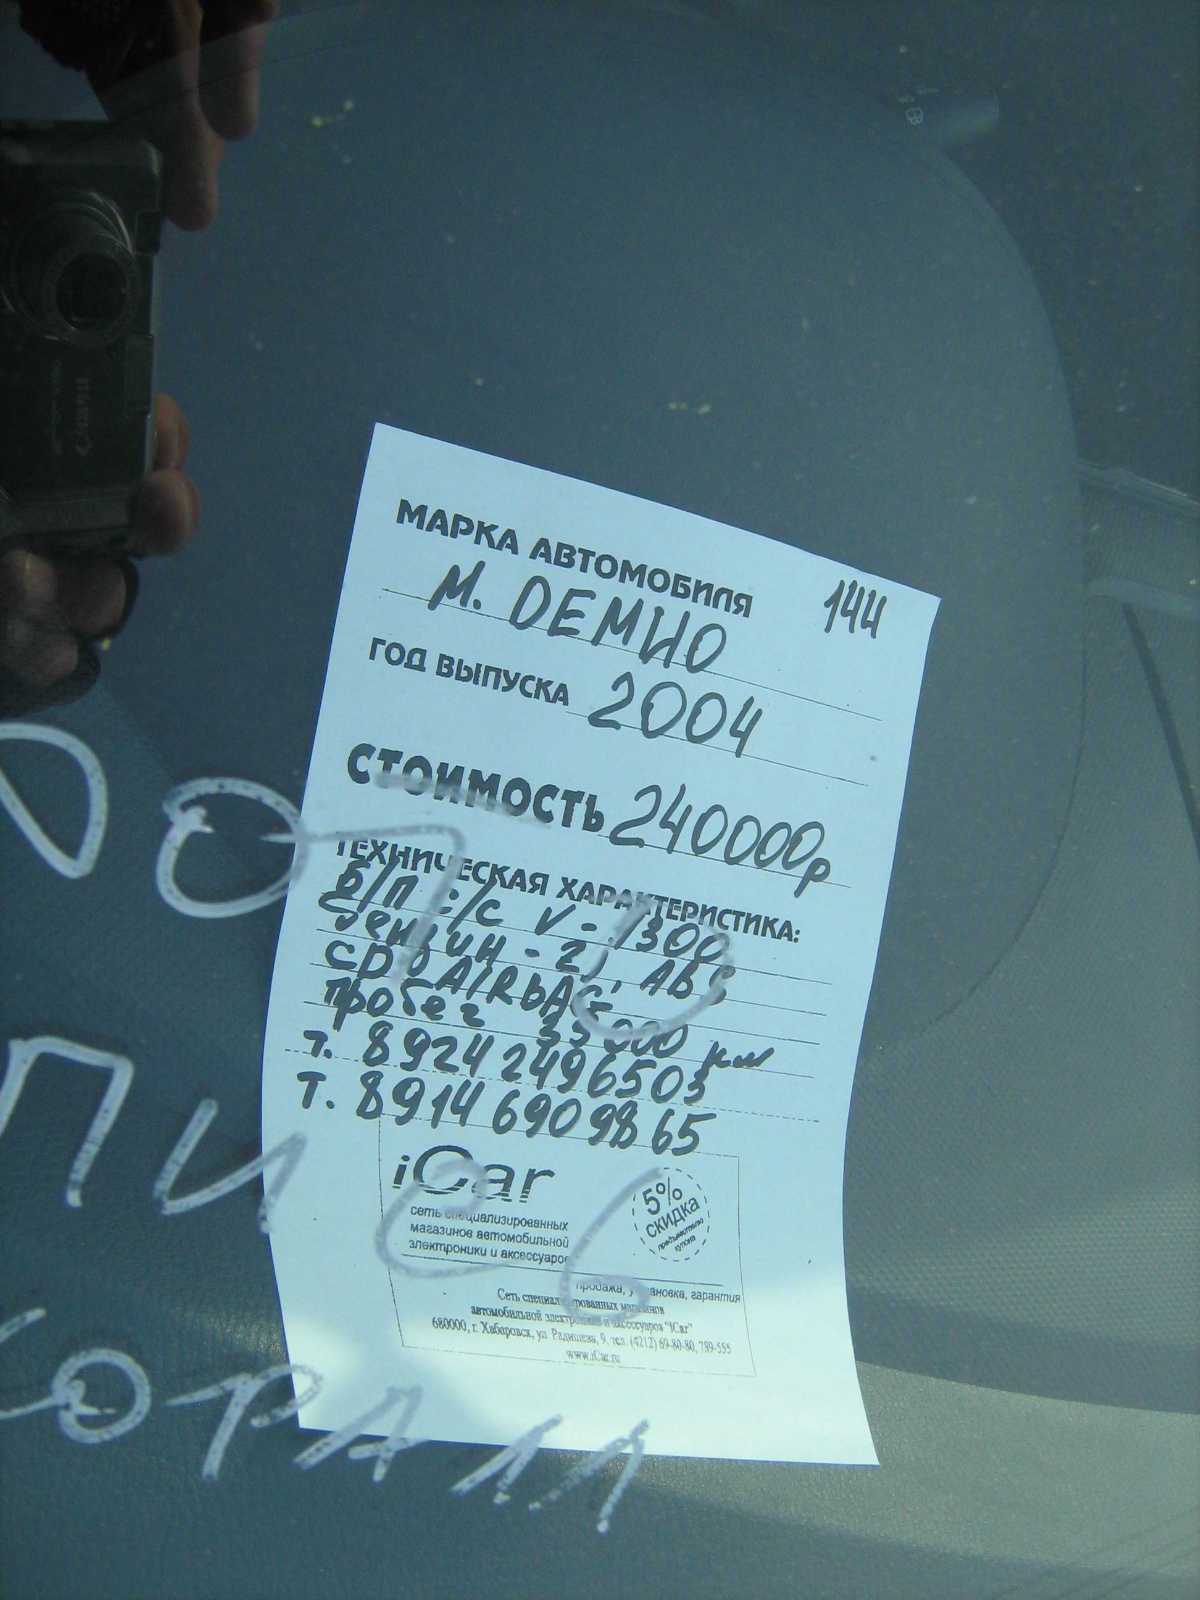 МАРКА АВТОМОБИЛЯ 144
М. ДЕМИО
ГОД ВЫПУСКА 2004
СТОИМОСТЬ 240000р
ТЕХНИЧЕСКАЯ ХАРАКТЕРИСТИКА:
б/п с/с V - 1300
бензин - 2, ABS
CD AIRbAG
пробег 35000 км
т. 8924 2496503
т. 8914 6909865
iCar
5%
СКИДКА
предъявителю
купона
сеть специализированных
магазинов автомобильной
электроники и аксессуаров
продажа, установка, гарантия
Сеть специализированных магазинов
автомобильной электроники и аксессуаров "iCar"
680000, г. Хабаровск, ул. Радищева, 9, тел. (4212) 69-80-80, 789-555
www.iCar.ru